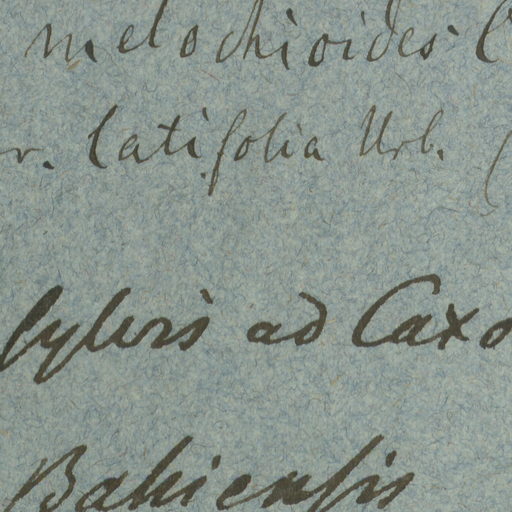 melochioides
r. latifolia Urb. (
sylvis ad Caxo
Bahiensis